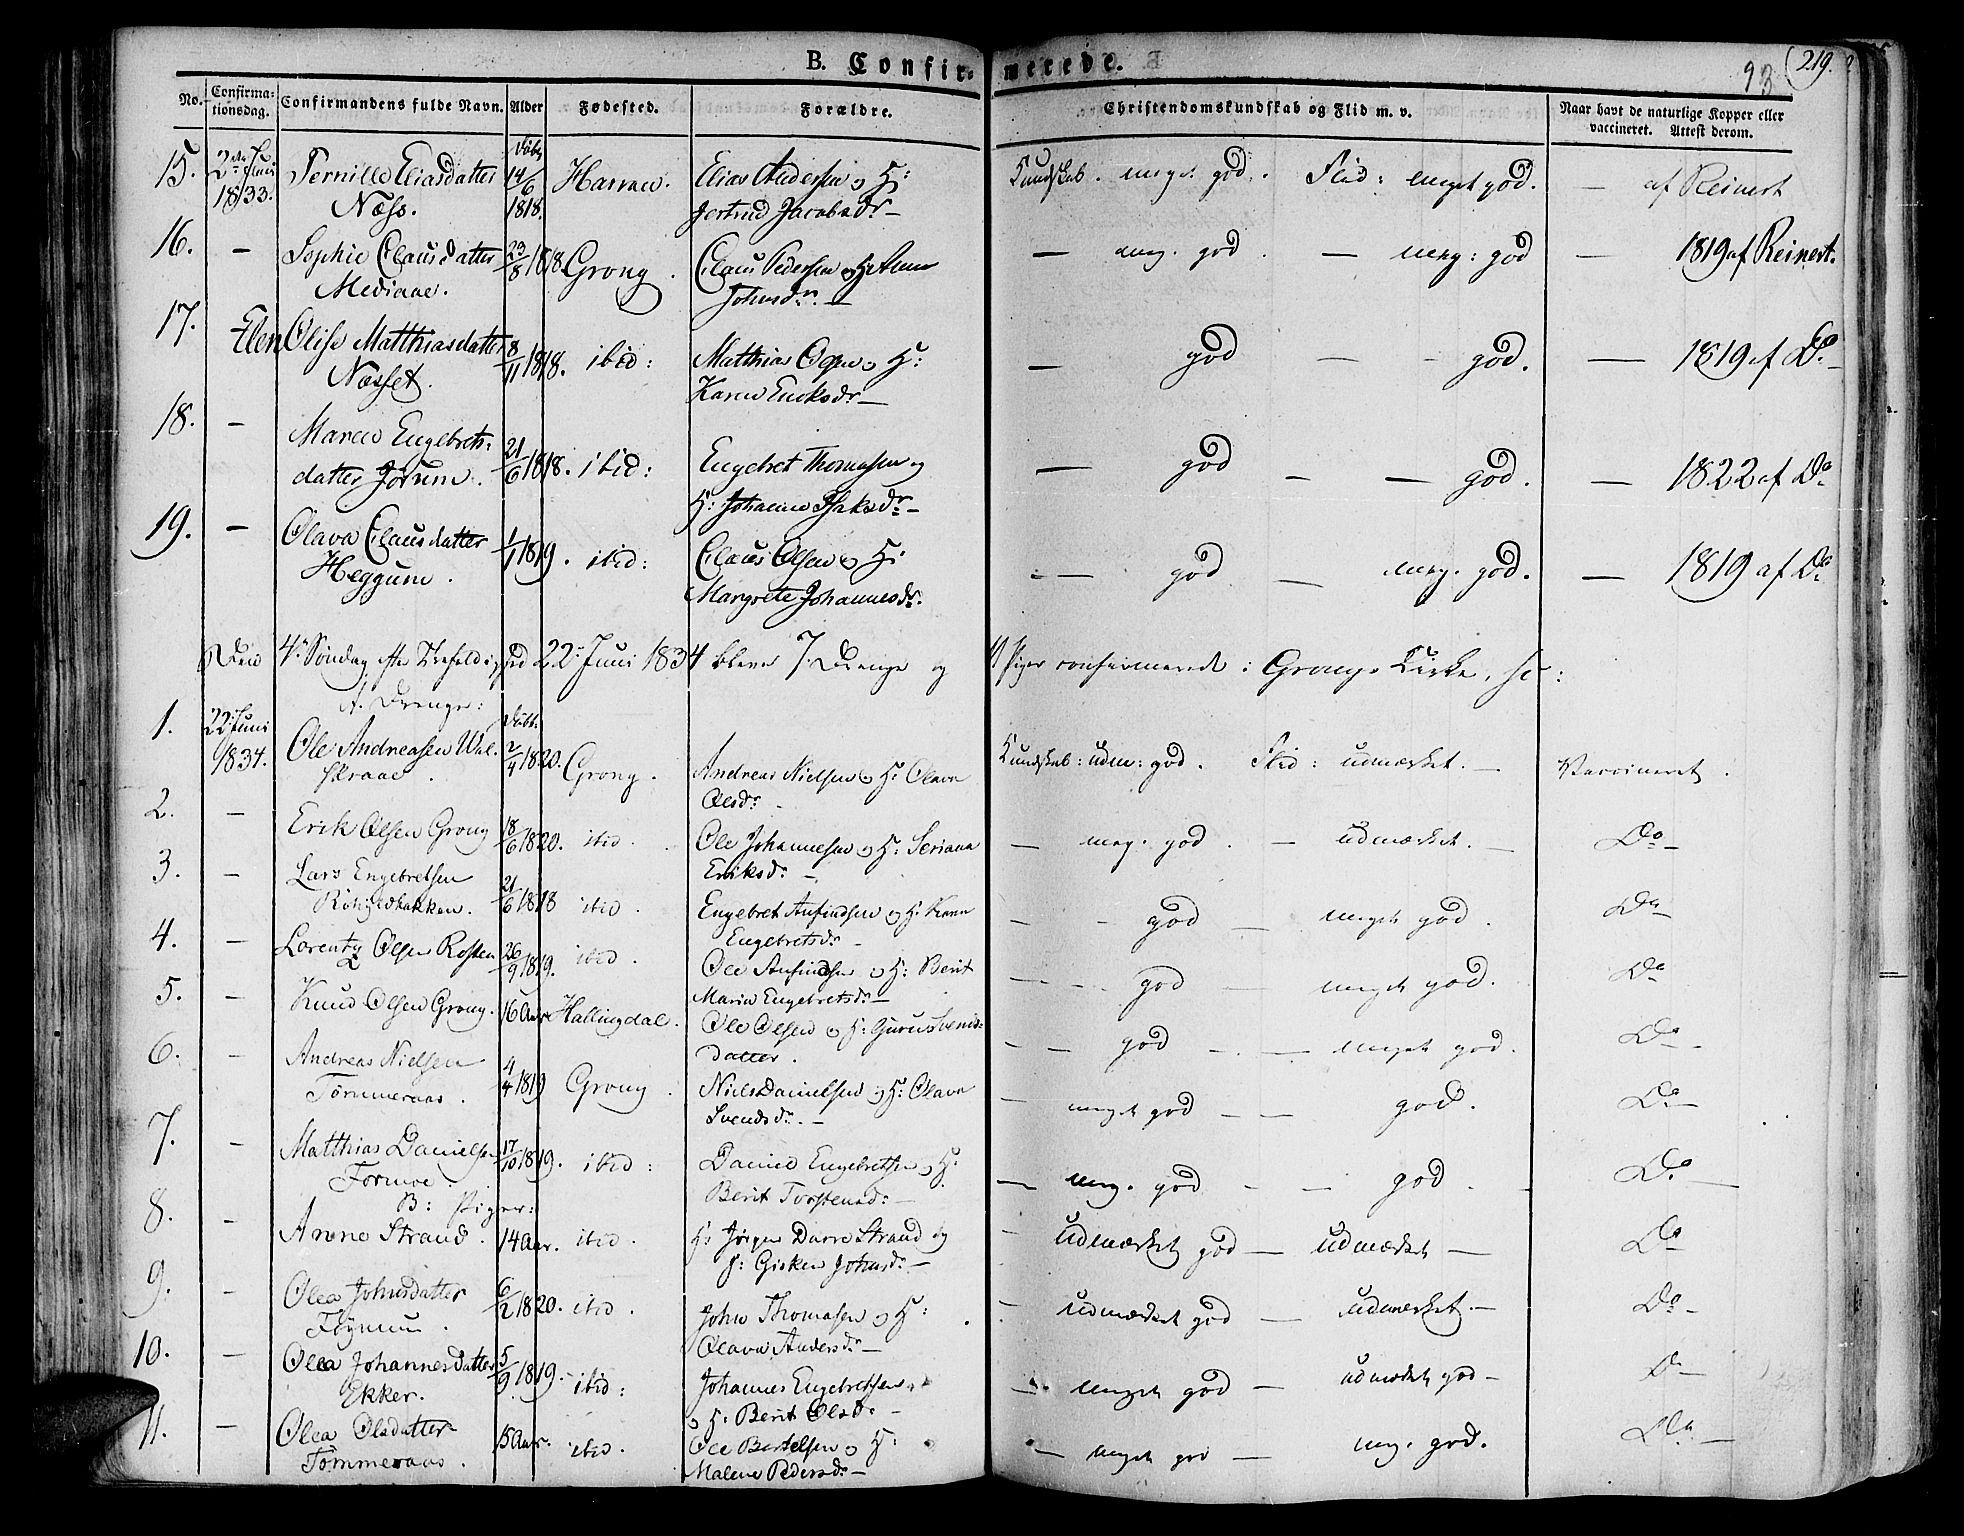 B. Confir- merede.
93 (219.
No. Confirma-tionsdag. Confirmandens fulde Navn. Alder Fødested. Forældre. Christendomskundskab og Flid m. v. Naar havt de naturlige Kopper eller vaccineret. Attest derom.
15. 2den Juni 1833. Pernille Eliasdatter Døbt 14/6 1818. Harran. Elias Andersen og H: Kundskab. meget god. Flid: meget god. — af Reinert
Næss. Jertrud Jacobsdr. —
16. — Sophie Clausdatter 23/8 1818. Grong. Claus Pedersen og H: — meg. god. — meg: god — 1819 af Reinert.
Mediaae. Johnsdr. —
17. Elen Olise Matthiasdatter 8/11 1818. ibid: Matthias Olsen og H: — god — god. — 1819 af Do
Næsset. Karen Eriksdr —
18. — Maren Engebrets- 21/6 1818. ibid: Engebret Thomassen og — god — — god. — 1822 af Do
datter Jørum. H: Johanne Isaksdr. —
19. — Olava Clausdatter 1/1 1819. ibid: Claus Olsen og H: — god — meg. god. — 1819 af Do
Heggum. Margrete Johannesdr.
Den 4de Søndag efter Trefoldighed 22de Juni 1834 bleve 7 Drenge og Piger confirmerede i Grongs Kirke, sc:
A. Drenge:
1. 22de Juni 1834. Ole Andreassen Wal- Døbt: 2/4 1820. Grong. Andreas Nielsen og H: Olava Kundskab: udm: god. Flid: udmærket. — Vaccineret.
skraae. Olsdr. —
2. — Erik Olsen Grong 18/6 1820. ibid. Ole Johannesen og H: Seriana — meg. god. — udmærket. — Do —
Eriksdr. —
3. — Lars Engebretsen 21/6 1818 ibid. Engebret Anfindsen og H: Karen — god meget god. Do
Engebretsdr. —
4. — Lorentz Olsen Rosten 26/9 1819. ibid. Ole Anfindsen og H: Berit — god — meget god. Do
Maria Engebretsdr. —
5. — Knud Olsen Grong. 16 Aar Hallingdal. Ole Olsen og H: Guru Svends- — god — meget god. Do —
datter.
6. — Andreas Nielsen 4/4 1819 Grong. Niels Danielsen og H: Olava meget god — — god. Do —
Tømmeraas. Svendsdr. —
7. — Matthias Danielsen 17/10 1819. ibid: Daniel Engebretsen og H: — meg. god — — god. — Do —
Formoe. Berit Torstensdr. —
B: Piger:
8. — Anne Strand. 14 Aar. ibid. Hr Jørgen Darre Strand og — udmærket god — udmærket — Do
H: Gisken Johnsdr. —
9. — Olea Johnsdatter 6/2 1820. ibid. John Thomassen og H: — udmærket god — udmærket. — Do —
Fløymum. Olava Andersdr. —
10. — Olea Johannesdatter 5/9 1819. ibid: Johannes Engebretsen — meget god — udmærket god — Do —
Ekker. og H: Berit Olsdr. —
11. — Olea Olsdatter 15 Aar. ibid. Ole Bertelsen og H: — meget god meg. god. Do —
Tømmeraas. Malene Pedersdr. —